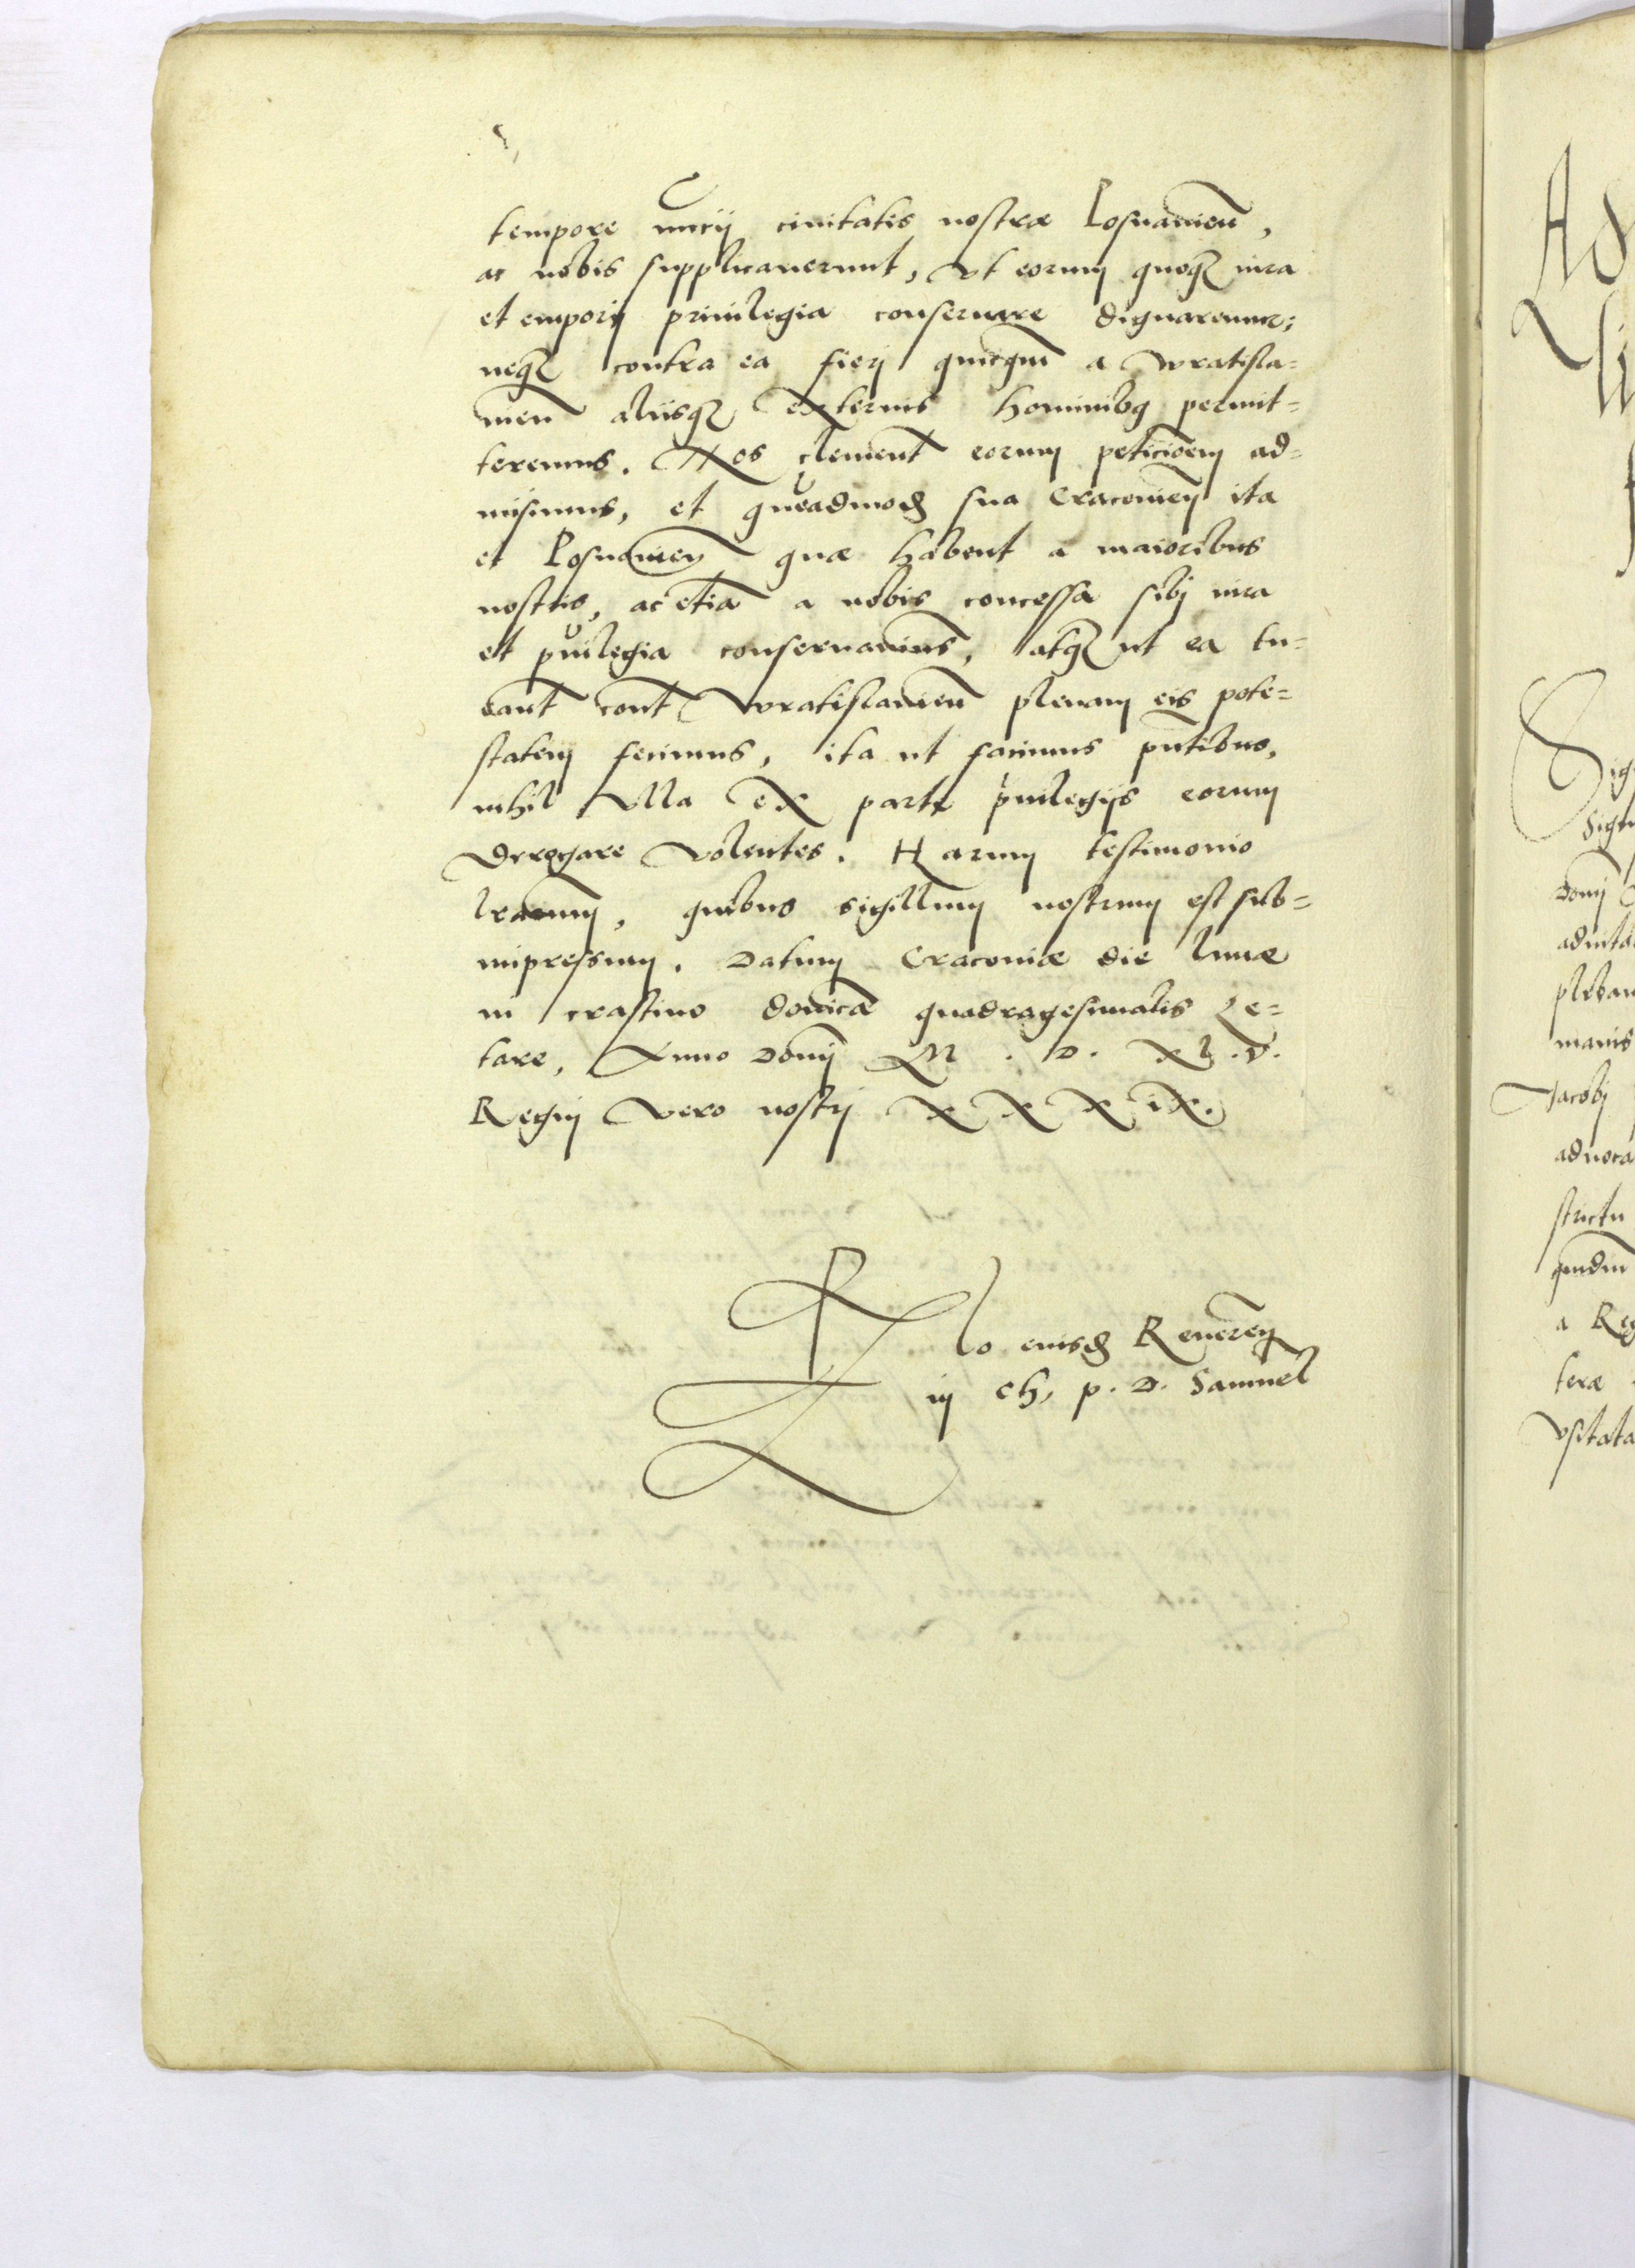 tempore nucij ciuitatis nostræ Posnanien̄,
ac nobis supplicauerunt, vt eorum quoq₃ iura
et emporij priuilegia conseruare dignaremur;
neq₃ contra ea fierj quicqm̄ a Wratisla=
uien̄ aliisq₃ externis hominibq permit=
teremus. Nos clement̄ eorum peticiōem ad=
misimus, et quēadmod₃ sua Cracovien̄ ita
et Posnanien̄ quæ habent a maioribus
nostris, ac etiā a nobis concessa sibj iura
et puilegia conseruauimus, atq₃ ut ea tu=
eant̄ cont̄ Wratislauien̄ plenam eis pote=
statem fecimus, ita ut facimus pn̄tibus,
nihil vlla ex parte puilegijs eorum
derogare volentes. Harum testimonio
lrarum, quibus sigillum nostrum est sub=
impressum. Datum Cracouiæ die lunæ
in crastino domicæ quadragesimalis Le=
tare, Anno Domj M. D. XL.V.
Regnj vero nostrj XXXIX.
R lo eiusd₃ Reueren̄
in Ch, p. D. Samuel
A
Sig
Sigi
Domj
aduita
pleban
manis
Jacobj
aduoca
strictu
quidm
a Reg
teræ
vsitata